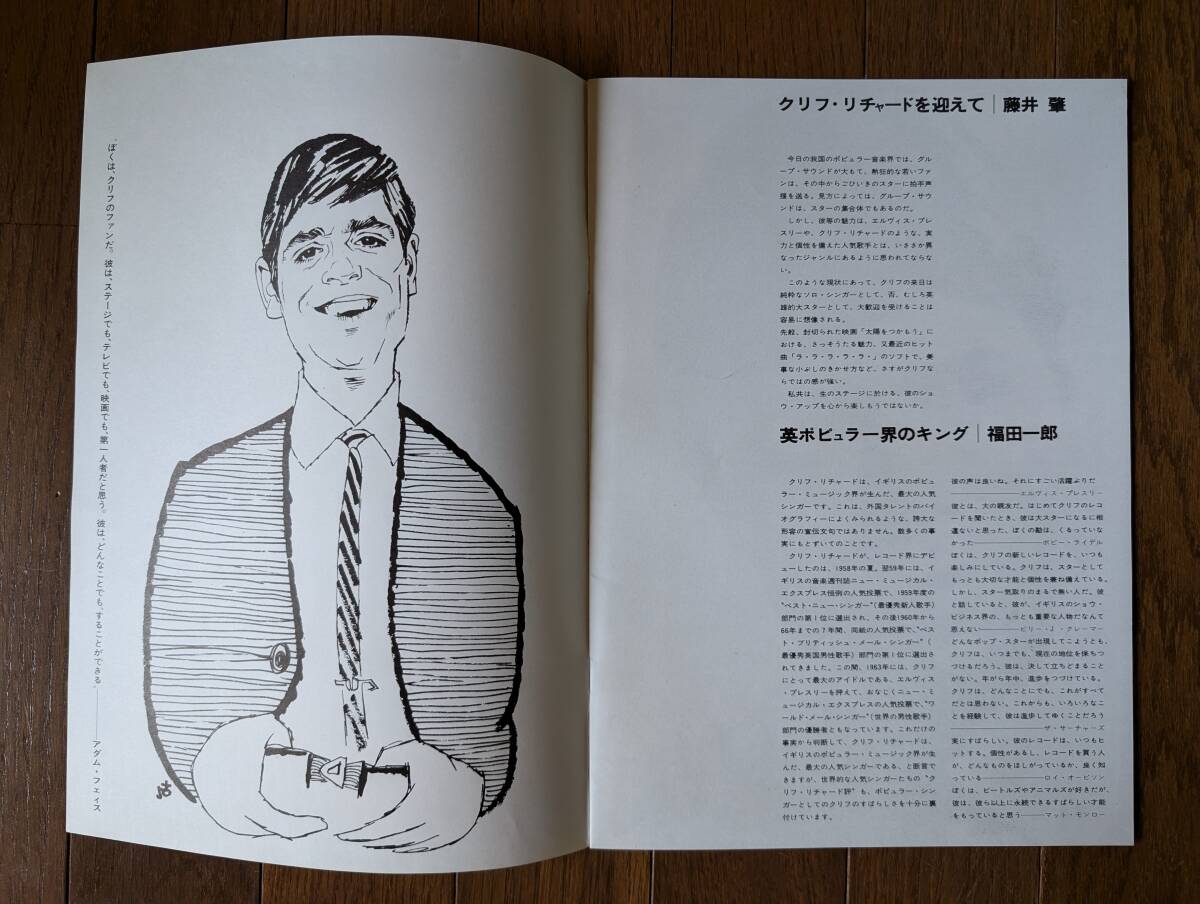 "ぼくは、クリフのファンだ。彼は、ステージでも、テレビでも、映画でも、第一人者だと思う。彼は、どんなことでも、することができる"――アダム・フェイス
クリフ・リチャードを迎えて|藤井 肇
今日の我国のポピュラー音楽界では、グル
ープ・サウンドが大もて、熱狂的な若いファ
ンは、その中からごひいきのスターに拍手声
援を送る。見方によっては、グループ・サウ
ンドは、スターの集合体でもあるのだ。
しかし、彼等の魅力は、エルヴィス・プレ
スリーや、クリフ・リチャードのような、実
力と個性を備えた人気歌手とは、いささか異
なったジャンルにあるように思われてならな
い。
このような現状にあって、クリフの来日は
純粋なソロ・シンガーとして、否、むしろ英
雄的大スターとして、大歓迎を受けることは
容易に想像される。
先般、封切られた映画「太陽をつかもう」に
おける、さっそうたる魅力、又最近のヒット
曲「ラ・ラ・ラ・ラ・ラ・」のソフトで、美
事な小ぶしのきかせ方など、さすがクリフな
らではの感が強い。
私共は、生のステージに於ける、彼のショ
ウ・アップを心から楽しもうではないか。
英ポピュラー界のキング|福田一郎
クリフ・リチャードは、イギリスのポピュ
ラー・ミュージック界が生んだ、最大の人気
シンガーです。これは、外国タレントのバイ
オグラフィーによくみられるような、誇大な
形容の宣伝文句ではありません。数多くの事
実にもとずいてのことです。
クリフ・リチャードが、レコード界にデビ
ューしたのは、1958年の夏。翌59年には、イ
ギリスの音楽週刊誌ニュー・ミュージカル・
エクスプレス恒例の人気投票で、1959年度の
"ベスト・ニュー・シンガー"(最優秀新人歌手)
部門の第1位に選出され、その後1960年から
66年までの7年間、同紙の人気投票で、"ベス
ト・ブリティッシュ・メール・シンガー"(
最優秀英国男性歌手)部門の第1位に選出さ
れてきました。この間、1963年には、クリフ
にとって最大のアイドルである、エルヴィス
・プレスリーを押えて、おなじくニュー・ミ
ュージカル・エクスプレスの人気投票で、"ワ
ールド・メール・シンガー"(世界の男性歌手)
部門の優勝者ともなっています。これだけの
事実から判断して、クリフ・リチャードは、
イギリスのポピュラー・ミュージック界が生
んだ、最大の人気シンガーである、と断言で
きますが、世界的な人気シンガーたちの"ク
リフ・リチャード評"も、ポピュラー・シン
ガーとしてのクリフのすばらしさを十分に裏
付けています。
彼の声は良いね。それにすごい活躍ぶりだ
――エルヴィス・プレスリー
彼とは、大の親友だ。はじめてクリフのレコ
ードを聞いたとき、彼は大スターになるに相
違ないと思った、ぼくの勘は、くるっていな
かった――ボビー・ライデル
ぼくは、クリフの新しいレコードを、いつも
楽しみにしている。クリフは、スターとして
もっとも大切な才能と個性を兼ね備えている。
しかし、スター気取りのまるで無い人だ。彼
と話していると、彼が、イギリスのショウ・
ビジネス界の、もっとも重要な人物だなんて
思えない――ビリー・J・クレーマー
どんなポップ・スターが出現してこようとも、
クリフは、いつまでも、現在の地位を保ちつ
づけるだろう。彼は、決して立ちどまること
がない。年がら年中、進歩をつづけている。
クリフは、どんなことにでも、これがすべて
だとは思わない。これからも、いろいろなこ
とを経験して、彼は進歩してゆくことだろう
――ザ・サーチャーズ
実にすばらしい。彼のレコードは、いつもヒ
ットする。個性があるし、レコードを買う人
が、どんなものをほしがっているか、良く知
っている――ロイ・オービソン
ぼくは、ビートルズやアニマルズが好きだが、
彼は、彼ら以上に永続できるすばらしい才能
をもっていると思う――マット・モンロー